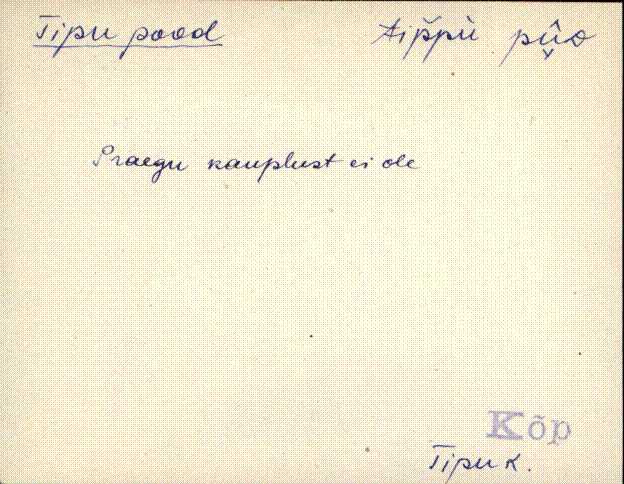 Tipu pood
Praegu kauplust ei ole
Kõp
Tipu k.